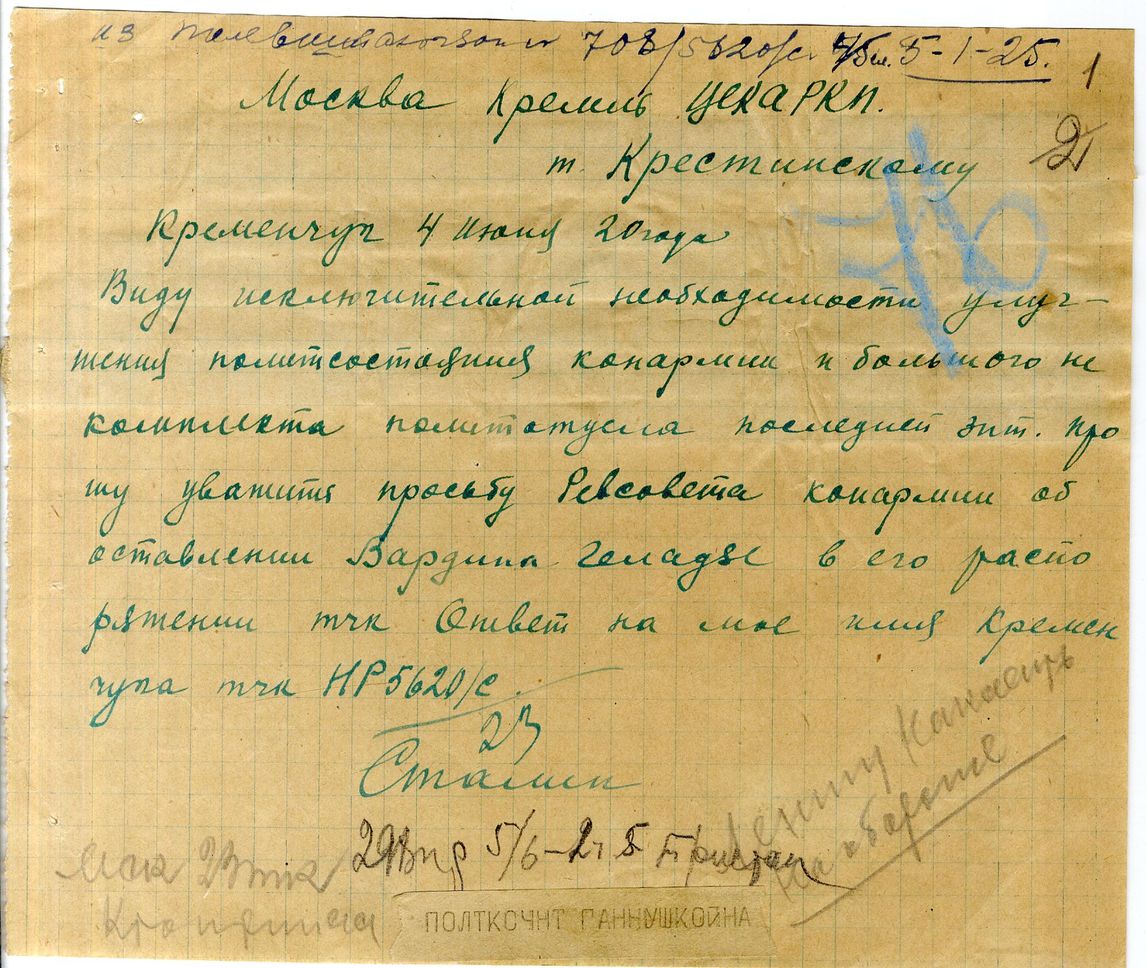 из 708/5820/сл 5-1-25.
1
Москва Кремль ЦЕКА РКП.
2
т. Крестинскому
Кременчуг 4 июня 20 года
Виду исключительной необходимости улуч-
шения политсостояния конармии и большого не
комплекта политотдела последней зпт. про
шу уважить просьбу Ревсовета конармии об
оставлении Вардина Геладзе в его распо
ряжении тчк Ответ на мое имя Кремен
чуга тчк НР5620/с.
23
Сталин
5/6-
ПОЛТКСЧНТ ГАННУШКОЙНА